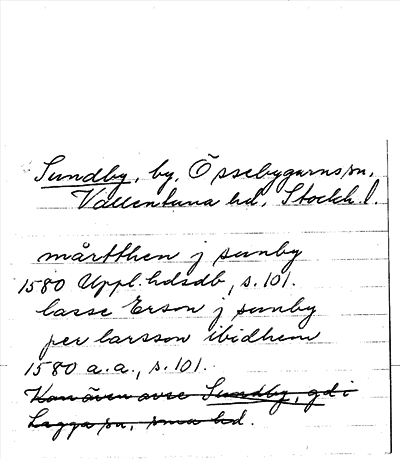 Sundby, by, Össebygarns sn,
Vallentuna hd, Stockh. l.
mårtthen j sunby
1580 Uppl. hdsdb, s. 101.
lasse Erson j sunby
per larsson ibidhem
1580 a.a., s. 101.
Kan även avse Sundby, gd i
Lagga sn, sma hd.